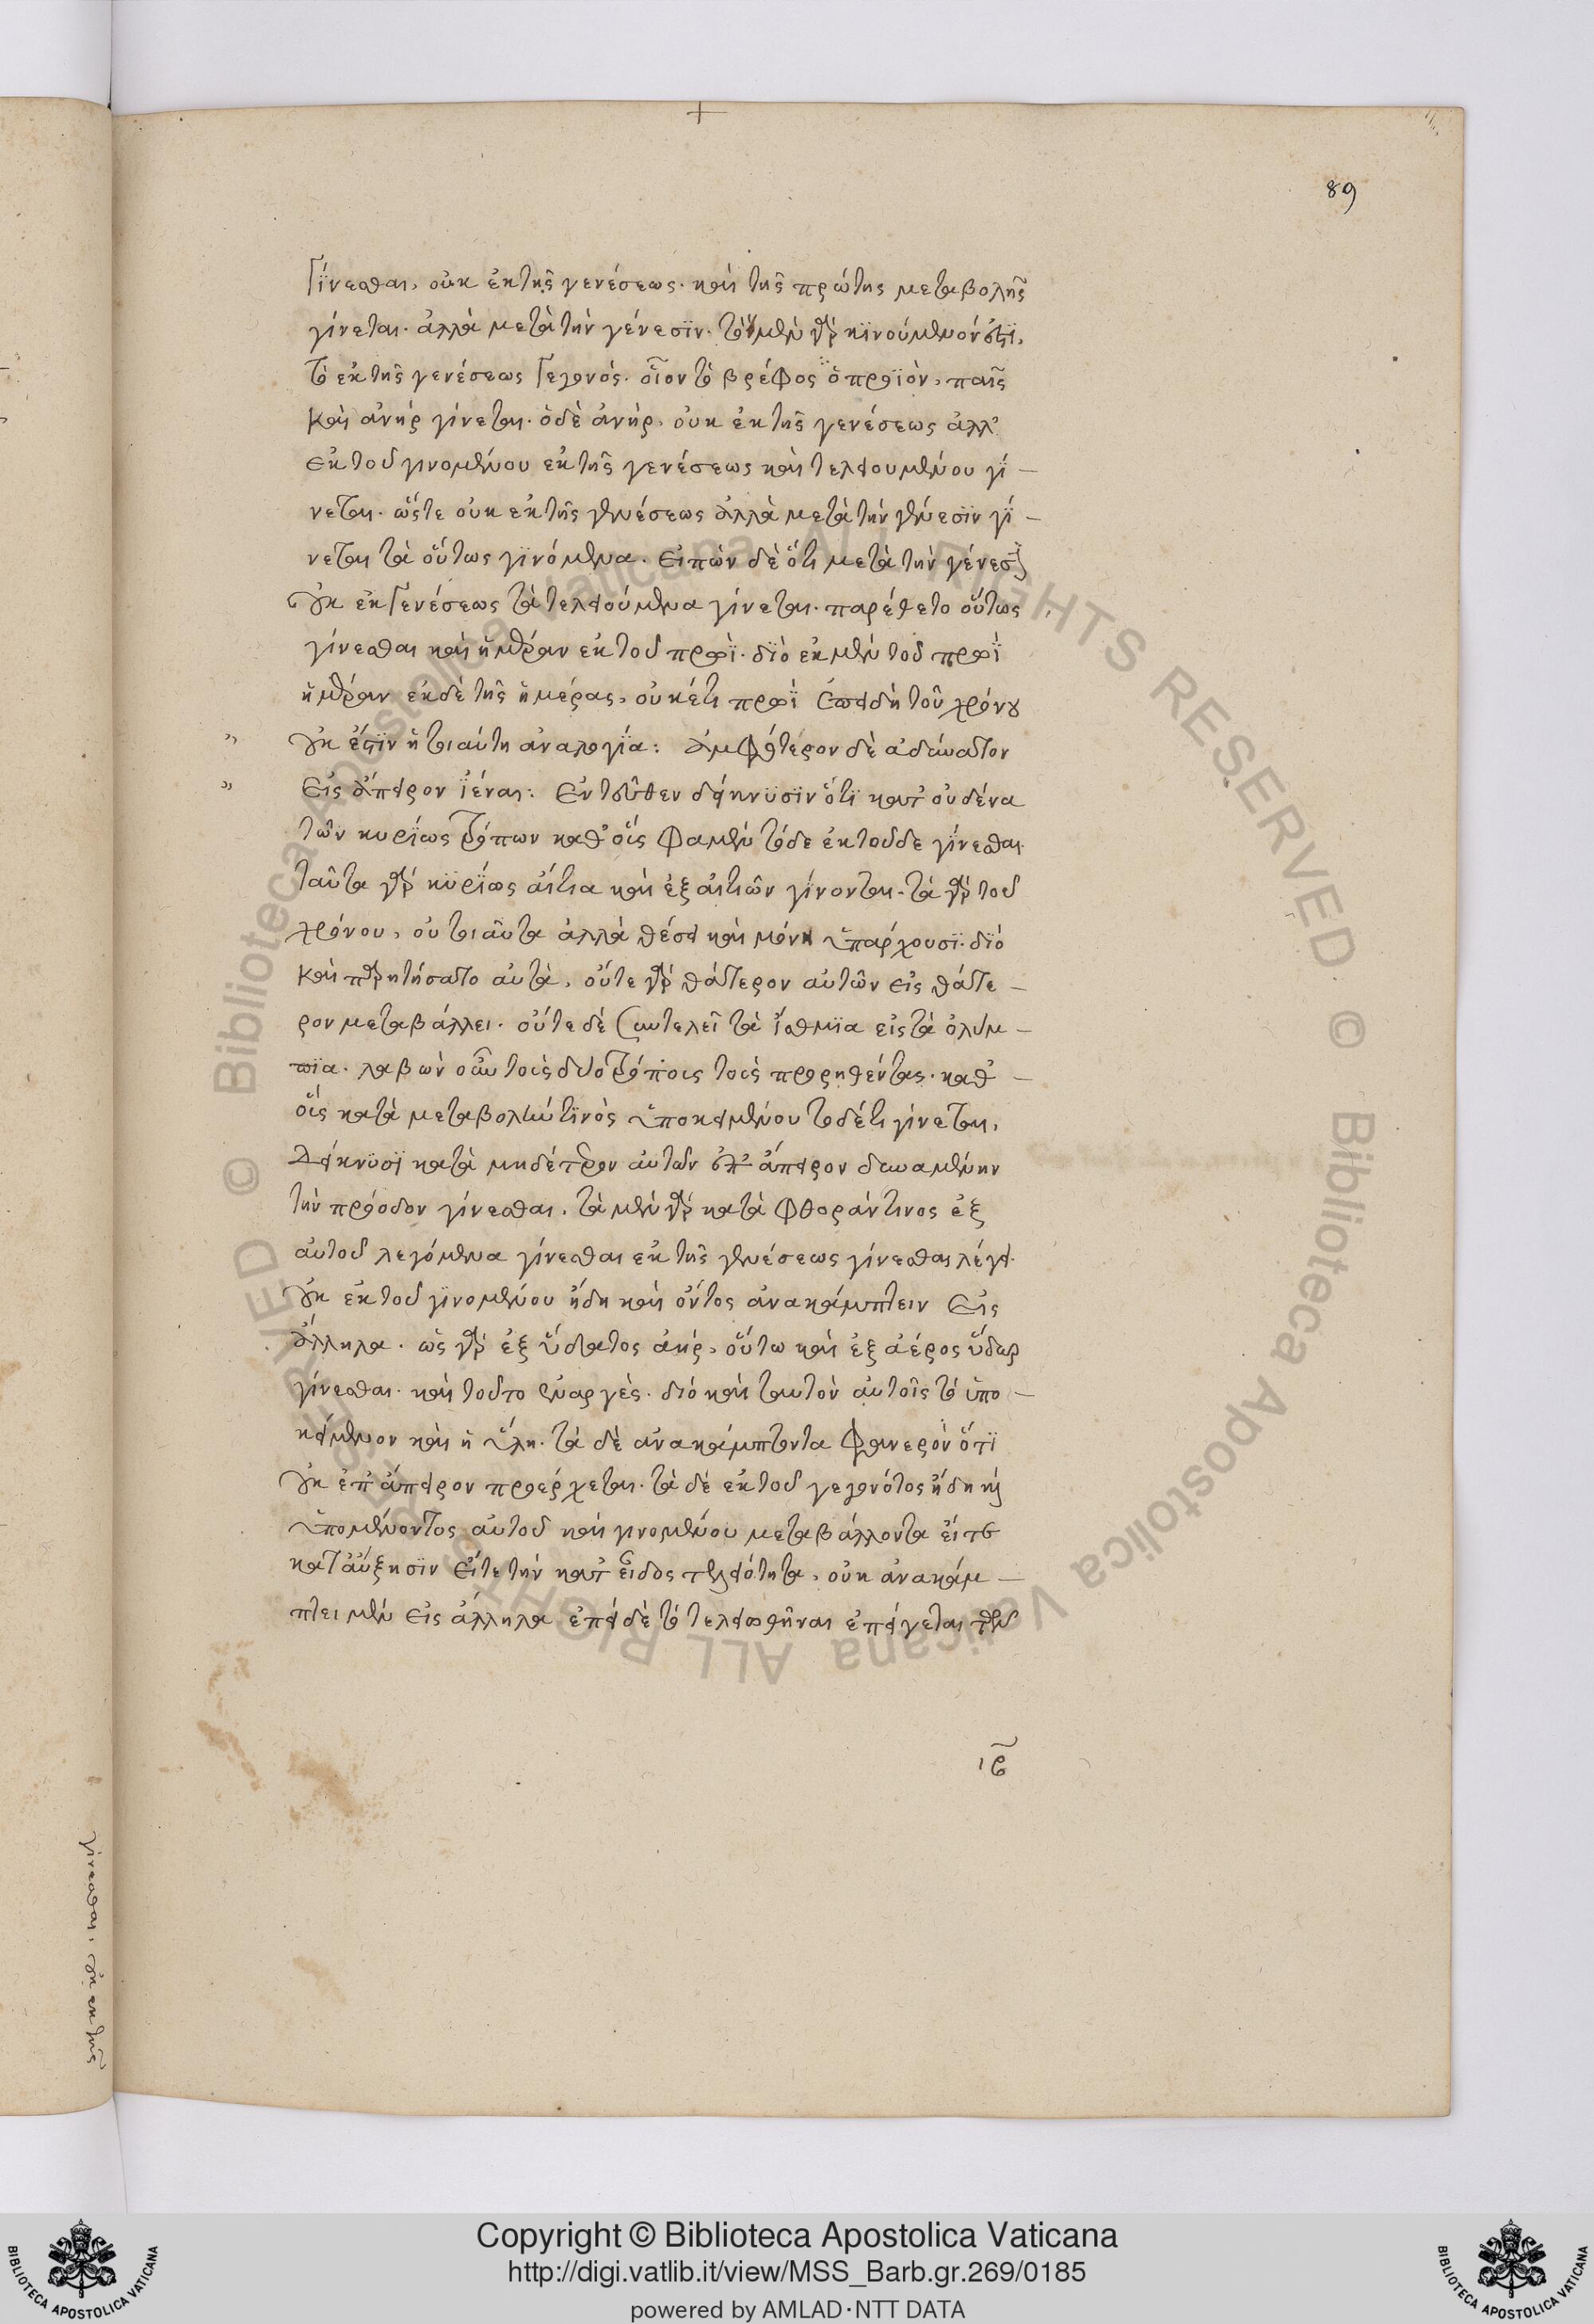 89
Γίνεσθαι, οὐκ ἐκ τῆς γενέσεως· καὶ τῆς πρώτης μεταβολῆς
γίνεται· ἀλλὰ μετὰ τὴν γένεσϊν· μὲν γὰρ κϊνούμενόν ἐστϊ,
τὸ ἐκ τῆς γενέσεως Γεγονός· οἷον τὸ βρέφος ὃ προϊὸν, παῖς
καὶ ἀνήρ γίνεται· ὁ δὲ ἀνὴρ, οὐκ ἐκ τῆς γενέσεως ἀλλ'
ἐκ τοῦ γινομένου ἐκ τῆς γενέσεως καὶ τελειουμένου γί –
νεται· ὥστε οὐκ ἐκ τῆς γενέσεως ἀλλὰ μετὰ τὴν γένεσϊν γί –
νεται τὰ οὕτως γϊνόμενα. Εἰπὼν δὲ ὅτι μετὰ τὴν γένεσϊν
οὐκ ἐκ Γενέσεως τὰ τελειούμενα γίνεται· παρέθετο οὕτως
γίνεσθαι καὶ ἡμέραν ἐκ τοῦ πρωΐ· δϊὸ ἐκ μὲν τοῦ πρωΐ
ἡμέραν ἐκ δὲ τῆς ἡμέρας, οὐκέτι πρωΐ ἐπειδὴ τοῦ χρόνου
οὐκ ἔστϊν ἡ τοιαύτη ἀναλογία: Ἀμφότερον δὲ ἀδύνατον
Εἰς ἄπειρον ἰέναι: Ἐντεῦθεν δείκνϋσϊν ὅτϊ κατ' οὐδένα
τῶν κυρίως τρόπων καθ' οὓς φαμὲν τόδε ἐκ τοῦδε γίνεσθαι·
ταῦτα γὰρ κϋρίως αἴτια καὶ ἐξ αἰτιῶν γίνονται· τὰ γὰρ τοῦ
χρόνου, οὐ τοιαῦτα ἀλλὰ θέσει καὶ μόνη ὑπάρχουσϊ· δϊό
καὶ παρῃτήσατο αὐτὰ, οὔτε γὰρ θάτερον αὐτῶν εἰς θάτε –
ρον μεταβάλλει· οὔτε δὲ συντελεῖ τὰ ἴσθμϊα εἰς τὰ ὀλύμ –
πϊα. λαβὼν οὖν τοὺς δύο τρόπους τοὺς προρηθέντας· καθ' –
οὓς κατὰ μεταβολήν τϊνὸς ὑποκειμένου τόδέ τι γίνεται,
Δείκνϋσϊ κατὰ μηδέτερον αὐτῶν ἐπ' ἄπειρον δυναμένην
τὴν πρόοδον γίνεσθαι. τὰ μὲν γὰρ κατὰ φθοράν τινος ἐξ
αὐτοῦ λεγόμενα γίνεσθαι ἐκ τῆς γενέσεως γίνεσθαι λέγει·
οὐκ ἐκ τοῦ γϊνομένου ἤδη καὶ ὄντος ἀνακάμπτειν Εἰς
ἄλληλα. ὡς γὰρ ἐξ ὕδατος ἀὴρ, οὕτω καὶ ἐξ ἀέρος ὕδωρ
γίνεσθαι· καὶ τοῦτο ἐναργὲς· διὸ καὶ ταυτὸν αὐτοῖς τὸ ὑπο –
κείμενον καὶ ἡ ὕλη· τὰ δὲ ἀνακάμπτοντα φανερὸν ὅτϊ
οὐκ ἐπ' ἄπειρον προέρχεται· τὰ δὲ ἐκ τοῦ γεγονότος ἤδη καὶ
ὑπομένοντος αὐτοῦ καὶ γινομένου μεταβάλλοντα εἴτε
κατ' αὔξησϊν εἴτε τὴν κατ' εἶδος τελειότητα, οὐκ ἀνακάμ –
πτει μὲν εἰς ἄλληλα ἐπεὶ δὲ τὸ τελειωθῆναι ἐπείγεται
γίνεσθαι, οὐκ ἐκ τῆς
Copyright © Biblioteca Apostolica Vaticana
http://digi.vatlib.it/view/MSS_Barb.gr.269/0185
powered by AMLAD·NTT DATA
BIBLIOTECA APOSTOLICA VATICANA
BIBLIOTECA APOSTOLICA VATICANA
© Biblioteca Apostolica Vaticana ALL RIGHTS RESERVED © Biblioteca Apostolica Vaticana ALL RIGHTS RESERVED